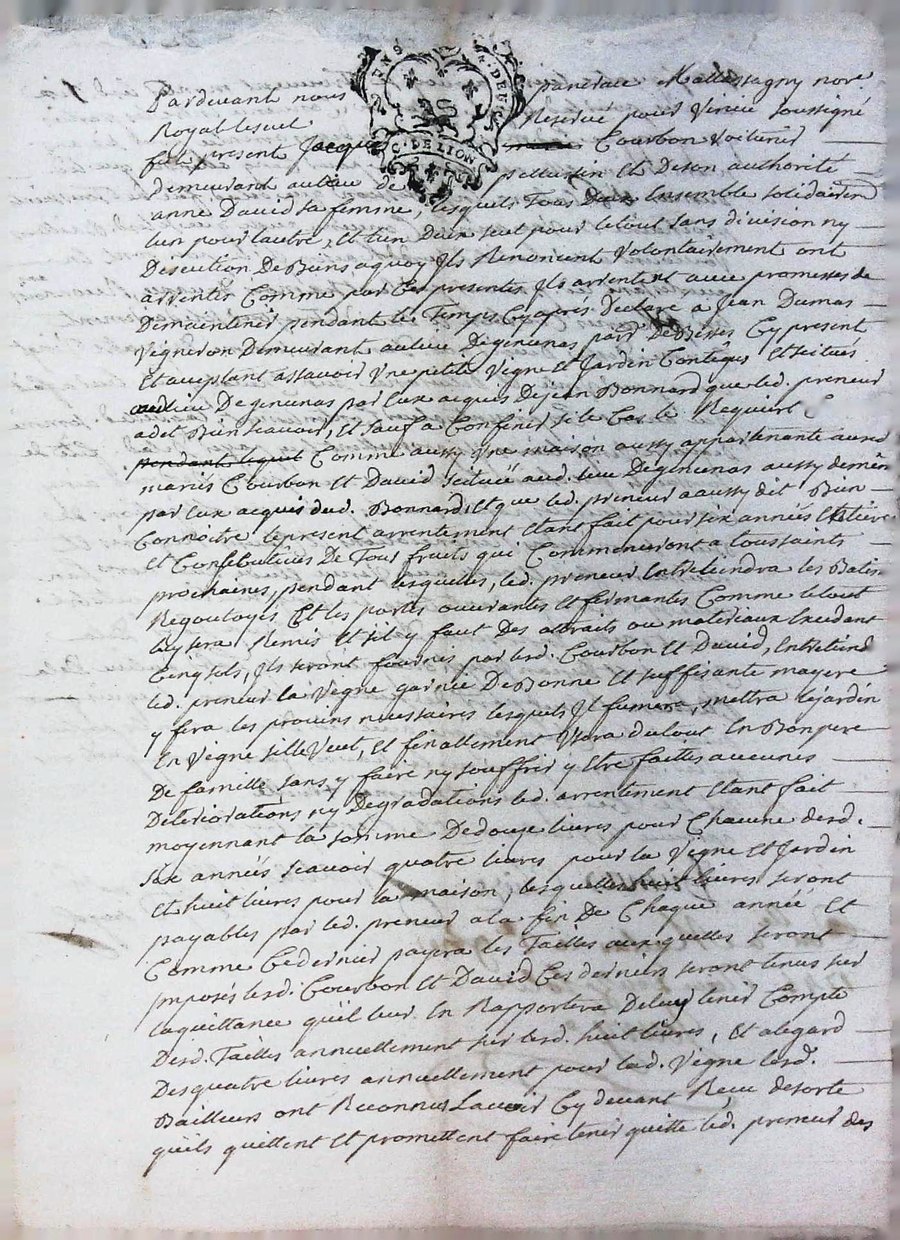 UN S 4. DEN
G. DE LION
Pardevant nous pancrace Mallessagny nore.
Royal lesuel Reservé pour vienne soussigné
fut present Jacques Courbon voiturier
Demeurant au lieu de pellussin Et De son authorité
anne David sa femme, lesquels Tous Deux Ensemble solidairemt
lun pour lautre, Et lun Deux seul pour le tout sans division ny
Discution De Biens aquoy Ils Renoncent Volontairement ont
arrenter Comme par Ces presentes Ils arrentent avec promesses de
Demaintenir pendant le Temps Cy aprés Declaré a Jean Dumas
Vigneron Demeurant au lieu De gencenas parr. De Besses Cy present
Et acceptant assavoir Vne petite Vigne Et Jardin Contigus Et scitués
audlieu De gencenas par Eux acquis De jean Bonnard que led. preneur
a dit Bien scavoir, Et sauf a Confiner si le Cas le Requiert
pendant lequel Comme aussy Vne maison aussy appartenante auxd
mariés Courbon Et David scituée aud. lieu De gencenas aussy demême
par Eux acquis dud. Bonnard, Et que led. preneur a aussy dit Bien
Connoitre le present arrentement Etant fait pour six années Entiere
Et Consecutives De Tous fruits qui Commenceront a toussaints
prochaines, pendant lesquelles, led. preneur Entretiendra les Batim
Regoutoyés Et les portes ouvrantes Et fermantes Comme le tout
luy sera Remis Et sil y faut Des attraits ou materiaux Excedant
Cinq sols, Ils seront fournis par lesd. Courbon Et David, Entretiend
led. preneur la Vigne garnie De Bonne Et suffisante mayere
y fera les provins necessaires lesquels Il fumera, mettra le jardin
En Vigne sil le Veut, Et finallement Vsera du tout En Bon pere
De famille sans y faire ny souffrir y Etre faittes aucunes
Deteriorations ny Degradations led. arrentement Etant fait
moyennant la somme De douze livres pour Chacune desd.
six années scavoir quatre livres pour la Vigne Et Jardin
Et huit livres pour la maison, lesquelles huit livres seront
payables par led. preneur a la fin De Chaque année Et
Comme Ce dernier payera les Tailles aux quelles seront
Imposés lesd. Courbon Et David Ces derniers seront tenus sur
la quittance quil leur En Rapportera De luy tenir Compte
Desd. Tailles annuellement sur lesd. huit livres, Et alegard
Des quatre livres annuellement pour lad. Vigne lesd.
Bailleurs ont Reconnus Lavoir Cy devant Recu desorte
quils quittent Et promettent faire tenir quitte led. preneur des